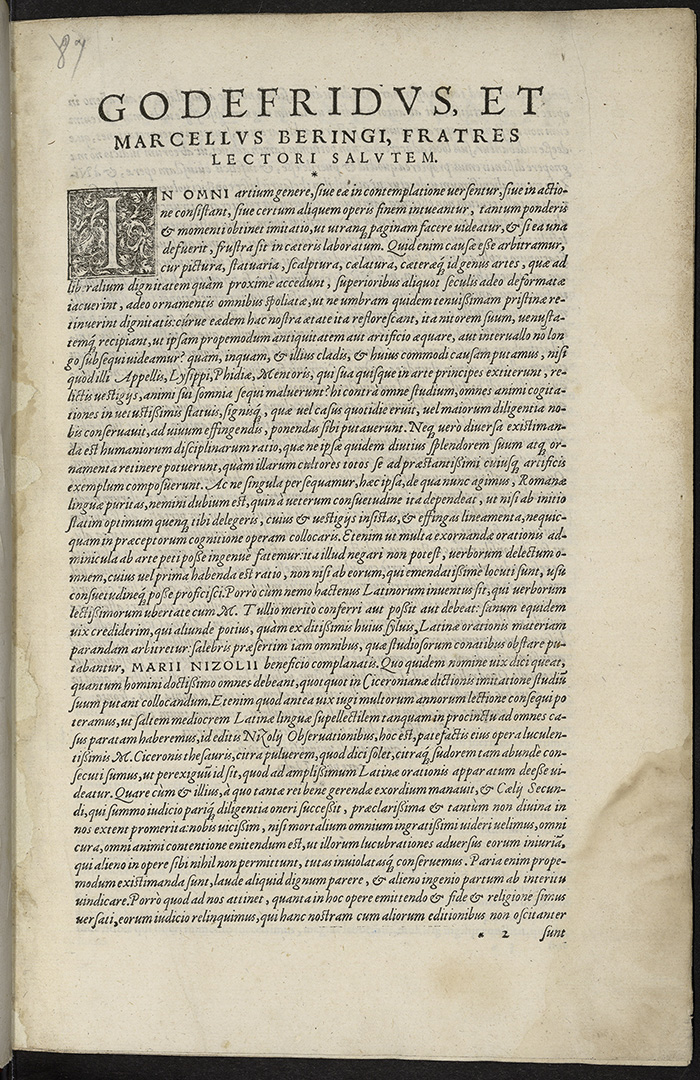 87
GODEFRIDVS, ET
MARCELLVS BERINGI, FRATRES
LECTORI SALVTEM.
*
IN OMNI artium genere, siue eæ in contemplatione uersentur, siue in actio-
ne consistant, siue certum aliquem operis finem intueantur, tantum ponderis
& momenti obtinet imitatio, ut utranq; paginam facere uideatur, & si ea una
defuerit, frustra sit in cæteris laboratum. Quid enim causæ eße arbitramur,
cur pictura, statuaria, scalptura, cælatura, cæteræq; id genus artes, quæ ad
liberalium dignitatem quàm proxime accedunt, superioribus aliquot seculis adeo deformatæ
iacuerint, adeo ornamentis omnibus spoliatæ, ut ne umbram quidem tenuißimam pristinæ re-
tinuerint dignitatis: cúrue eædem hac nostra ætate ita reflorescant, ita nitorem suum, uenusta-
temq; recipiant, ut ipsam propemodum antiquitatem aut artificio æquare, aut interuallo no lon
go subsequi uideamur? quàm, inquam, & illius cladis, & huius commodi causam putamus, nisi
quòd illi Appellis, Lysippi, Phidiæ, Mentoris, qui sua quisque in arte principes extiterunt, re-
lictis uestigijs, animi sui somnia sequi maluerunt? hi contrà omne studium, omnes animi cogita-
tiones in uetustißimis statuis, signisq;, quæ uel casus quotidie eruit, uel maiorum diligentia no-
bis conseruauit, ad uiuum effingendis, ponendas sibi putauerunt. Neq; uerò diuersa existiman-
da est humaniorum disciplinarum ratio, quæ ne ipsæ quidem diutius splendorem suum atq; or-
namenta retinere potuerunt, quàm illarum cultores totos se ad præstantißimi cuiusq; artificis
exemplum composuerunt. Ac ne singula persequamur, hæc ipsa, de qua nunc agimus, Romanæ
linguæ puritas, nemini dubium est, quin à ueterum consuetudine ita dependeat, ut nisi ab initio
statim optimum quenq; tibi delegeris, cuius & uestigijs insistas, & effingas lineamenta, nequic-
quam in præceptorum cognitione operam collocaris. Etenim ut multa exornandæ orationis ad-
minicula ab arte peti poße ingenue fatemur: ita illud negari non potest, uerborum delectum o-
mnem, cuius uel prima habenda est ratio, non nisi ab eorum, qui emendatißimè locuti sunt, usu
consuetudineq; poße proficisci. Porrò cùm nemo hactenus Latinorum inuentus sit, qui uerborum
lectißimorum ubertate cum M. Tullio meritò conferri aut poßit aut debeat: sanum equidem
uix crediderim, qui aliunde potius, quàm ex ditißimis huius syluis, Latinæ orationis materiam
parandam arbitretur: salebris præsertim iam omnibus, quæ studiosorum conatibus obstare pu-
tabantur, MARII NIZOLII beneficio complanatis. Quo quidem nomine uix dici queat,
quantum homini doctißimo omnes debeant, quotquot in Ciceronianæ dictionis imitatione studiũ
suum putant collocandum. Etenim quod antea uix iugi multorum annorum lectione consequi po
teramus, ut saltem mediocrem Latinæ linguæ supellectilem tanquam in procinctu ad omnes ca-
sus paratam haberemus, id editis Nizolij Obseruationibus, hoc est, patefactis eius opera luculen-
tißimis M. Ciceronis thesauris, citra puluerem, quod dici solet, citraq; sudorem tam abundè con-
secuti sumus, ut perexiguũ id sit, quod ad amplißimum Latinæ orationis apparatum deeße ui-
deatur. Quare cùm & illius, à quo tantæ rei bene gerendæ exordium manauit, & Cælij Secun-
di, qui summo iudicio pariq; diligentia oneri succeßit, præclarißima & tantùm non diuina in
nos extent promerita: nobis uicißim, nisi mortalium omnium ingratißimi uideri uelimus, omni
cura, omni animi contentione enitendum est, ut illorum lucubrationes aduersus eorum iniuriã,
qui alieno in opere sibi nihil non permittunt, tutas inuiolatasq; conseruemus. Paria enim prope-
modum existimanda sunt, laude aliquid dignum parere, & alieno ingenio partum ab interitu
uindicare. Porrò quod ad nos attinet, quanta in hoc opere emittendo & fide & religione simus
uersati, eorum iudicio relinquimus, qui hanc nostram cum aliorum editionibus non oscitanter
* 2 sunt